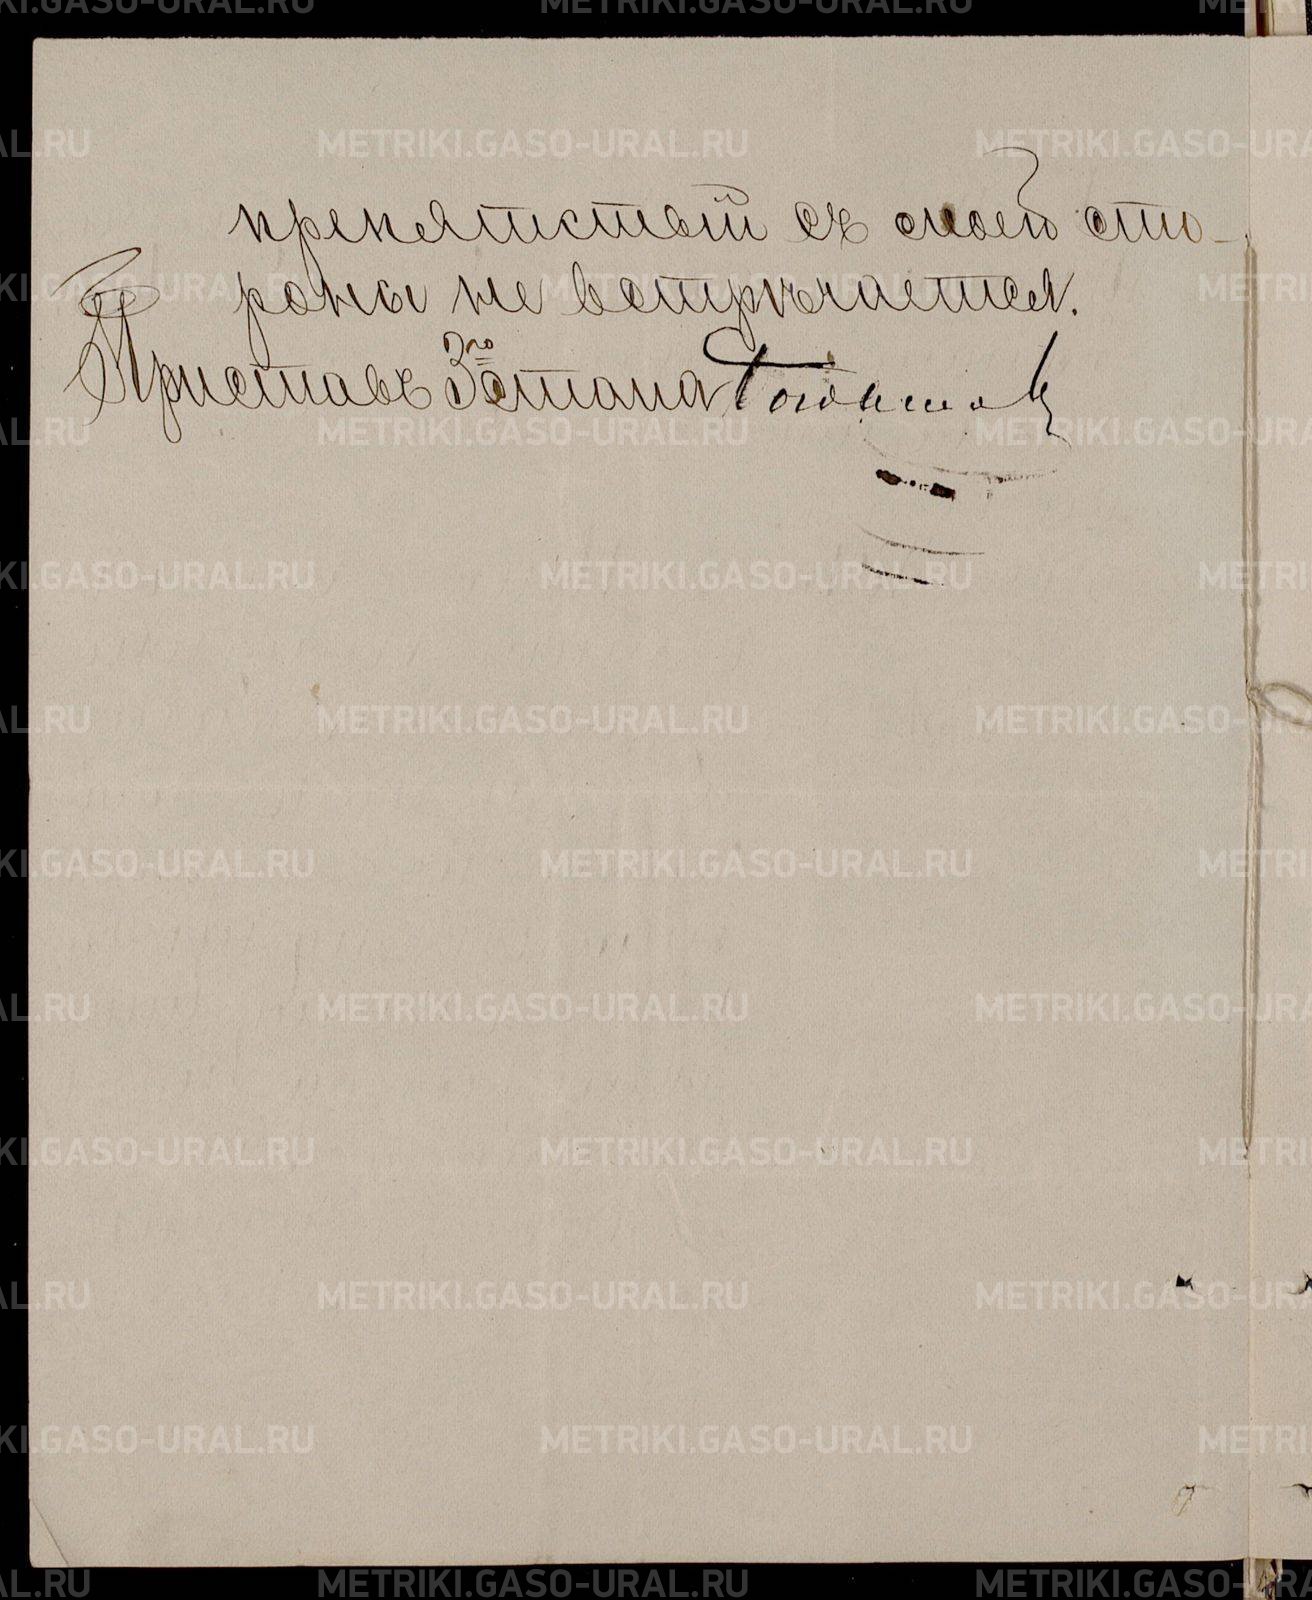 препятствій съ моей сто-
роны не встрѣчается.
Приставъ 3го стана
METRIKI.GASO-URAL.RU